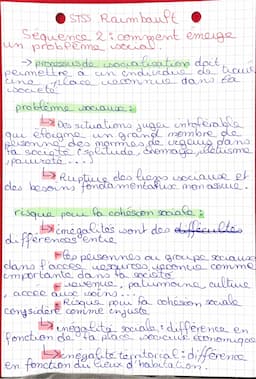 STSS Raimbault
Séquence 2 : comment émerge
un problème social.
→ processus de socialisation doit
permettre à un individu de
une place reconnue dans la
société
problème sociaux :
Des situations juger intolérable
qui éloigne un grand nombre de
personne, des normes de vigeur dans
la société (solitude, chomage, illetrisme
, pauvreté ....)
Rupture des liens sociaux et
des besoins fondamentaux non assuré.
risque pour la cohésion sociale :
inégalités sont des difficultés
différences entre
les personnes ou groupe sociaux
dans l'accès ressources reconnue comme
importante dans la société
revenue, patrimoine, culture
, accès aux soins ...
Risque pour la cohésion sociale
considéré comme injuste
inégalité sociale : différence en
fonction de la place socio économique
inégalité territorial : différence
en fonction du lieux d'habitation.